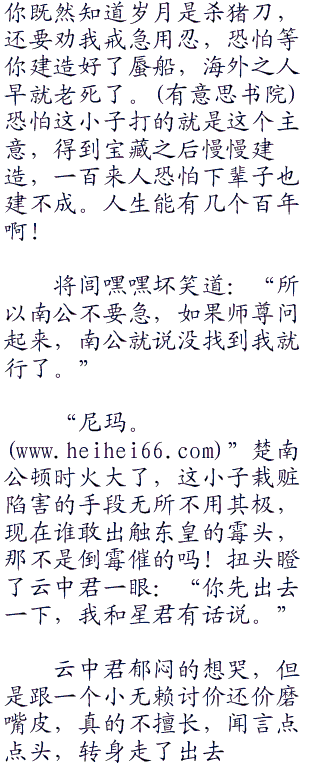 你既然知道岁月是杀猪刀，
还要劝我戒急用忍，恐怕等
你建造好了蜃船，海外之人
早就老死了。(有意思书院)
恐怕这小子打的就是这个主
意，得到宝藏之后慢慢建
造，一百来人恐怕下辈子也
建不成。人生能有几个百年
啊！
将闾嘿嘿坏笑道：“所
以南公不要急，如果师尊问
起来，南公就说没找到我就
行了。”
“尼玛。
(www.heihei66.com)”楚南
公顿时火大了，这小子栽赃
陷害的手段无所不用其极，
现在谁敢出触东皇的霉头，
那不是倒霉催的吗！扭头瞪
了云中君一眼：“你先出去
一下，我和星君有话说。”
云中君郁闷的想哭，但
是跟一个小无赖讨价还价磨
嘴皮，真的不擅长，闻言点
点头，转身走了出去